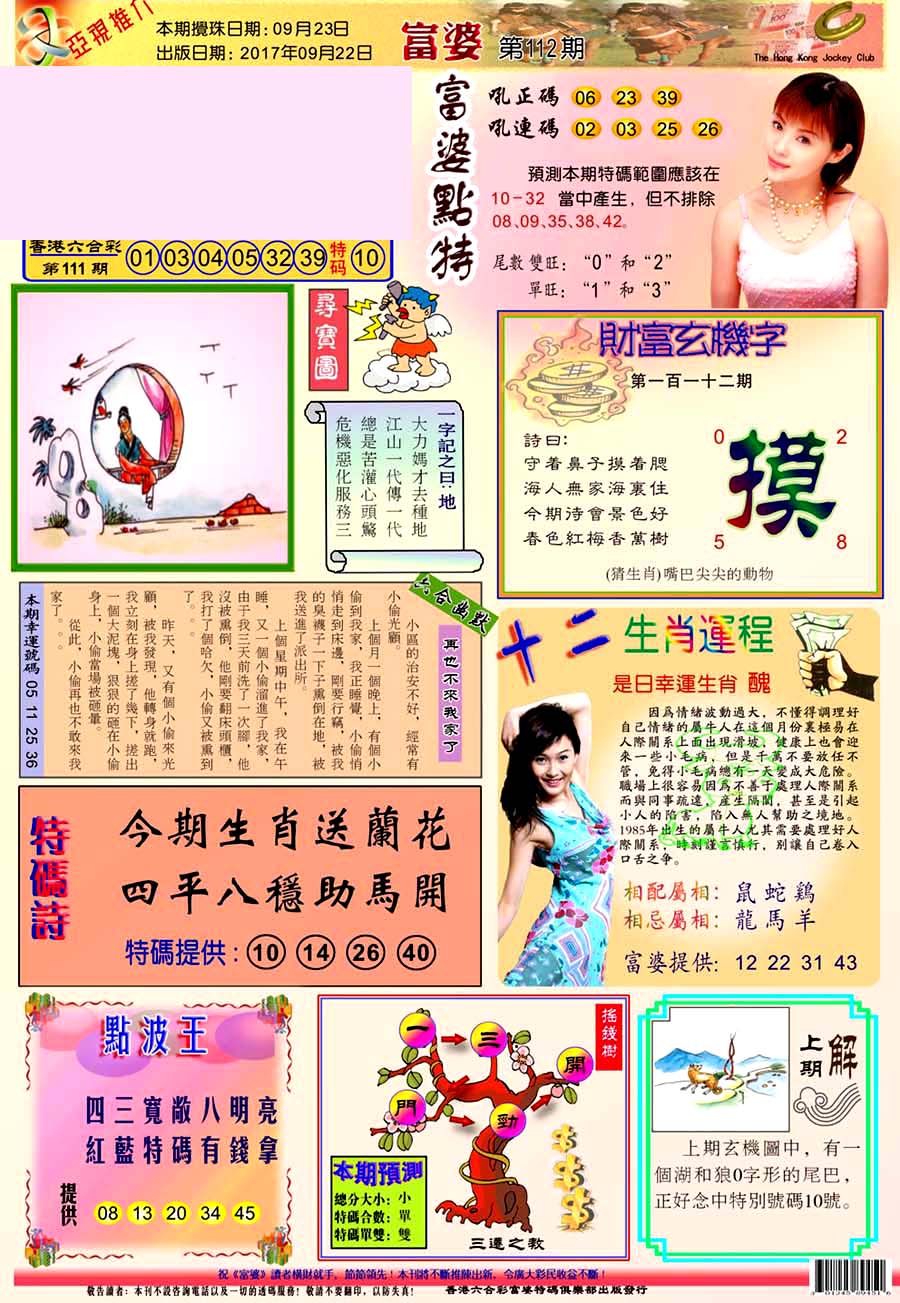 亞視推介
本期攪珠日期：09月23日
出版日期：2017年09月22日
富婆 第112期
The Hong Kong Jockey Club
香港六合彩
第111期
01 03 04 05 32 39 特码 10
富婆點特
吼正碼 06 23 39
吼連碼 02 03 25 26
預測本期特碼範圍應該在
10-32 當中產生，但不排除
08、09、35、38、42。
尾數雙旺：“0”和“2”
單旺：“1”和“3”
尋寶圖
一字記之曰：地
大力媽才去種地
江山一代傳一代
總是苦灌心頭驚
危機惡化服務三
財富玄機字
第一百一十二期
詩曰：
守着鼻子摸着腮
海人無家海裏住
今期待會景色好
春色紅梅香萬樹
0 2
摸
5 8
(猜生肖)嘴巴尖尖的動物
六合幽默
再也不來我家了
小區的治安不好，經常有
小偷光顧。
上個月一個晚上，有個小
偷到我家，我正睡覺，小偷悄
悄走到床邊，剛要行竊，被我
的臭襪子一下子熏倒在地，被
我送進了派出所。
上個星期中午，我在午
睡，又一個小偷溜進了我家，他
由于我三天前洗了一次腳，他
沒被熏倒，他剛要翻床頭櫃，
我打了個哈欠，小偷又被熏到
了。。
昨天，又有個小偷來光
顧，被我發現，他轉身就跑，
我立刻在身上搓了幾下，搓出
一個大泥塊，狠狠的砸在小偷
身上，小偷當場被砸暈。
從此，小偷再也不敢來我
家了。。
本期幸運號碼 05 11 25 36
十二生肖運程
是日幸運生肖 醜
因爲情緒波動過大，不懂得調理好
自己情緒的屬牛人在這個月份裏極易在
人際關系上面出現滑坡，健康上也會迎
來一些小毛病，但是千萬不要放任不
管，免得小毛病總有一天變成大危險。
職場上很容易因爲不善于處理人際關系
而與同事疏遠，産生隔閡，甚至是引起
小人的陷害，陷入無人幫助之境地。
1985年出生的屬牛人尤其需要處理好人
際關系，時刻謹言慎行，別讓自己卷入
口舌之争。
相配屬相：鼠蛇鷄
相忌屬相：龍馬羊
富婆提供：12 22 31 43
特碼詩
今期生肖送蘭花
四平八穩助馬開
特碼提供：10 14 26 40
點波王
四三寬敞八明亮
紅藍特碼有錢拿
提供 08 13 20 34 45
搖錢樹
一 三 開
門 勁
本期預測
總分大小：小
特碼合數：單
特碼單雙：雙
三遷之教
上期解
上期玄機圖中，有一
個湖和狼0字形的尾巴，
正好念中特別號碼10號。
祝《富婆》讀者橫財就手，節節領先！本刊將不斷推陳出新，令廣大彩民收益不斷！
敬告讀者：本刊不設咨詢電話以及一切的透碼服務！敬請不要翻印，以防失真！ 香港六合彩富婆特碼俱樂部出版發行